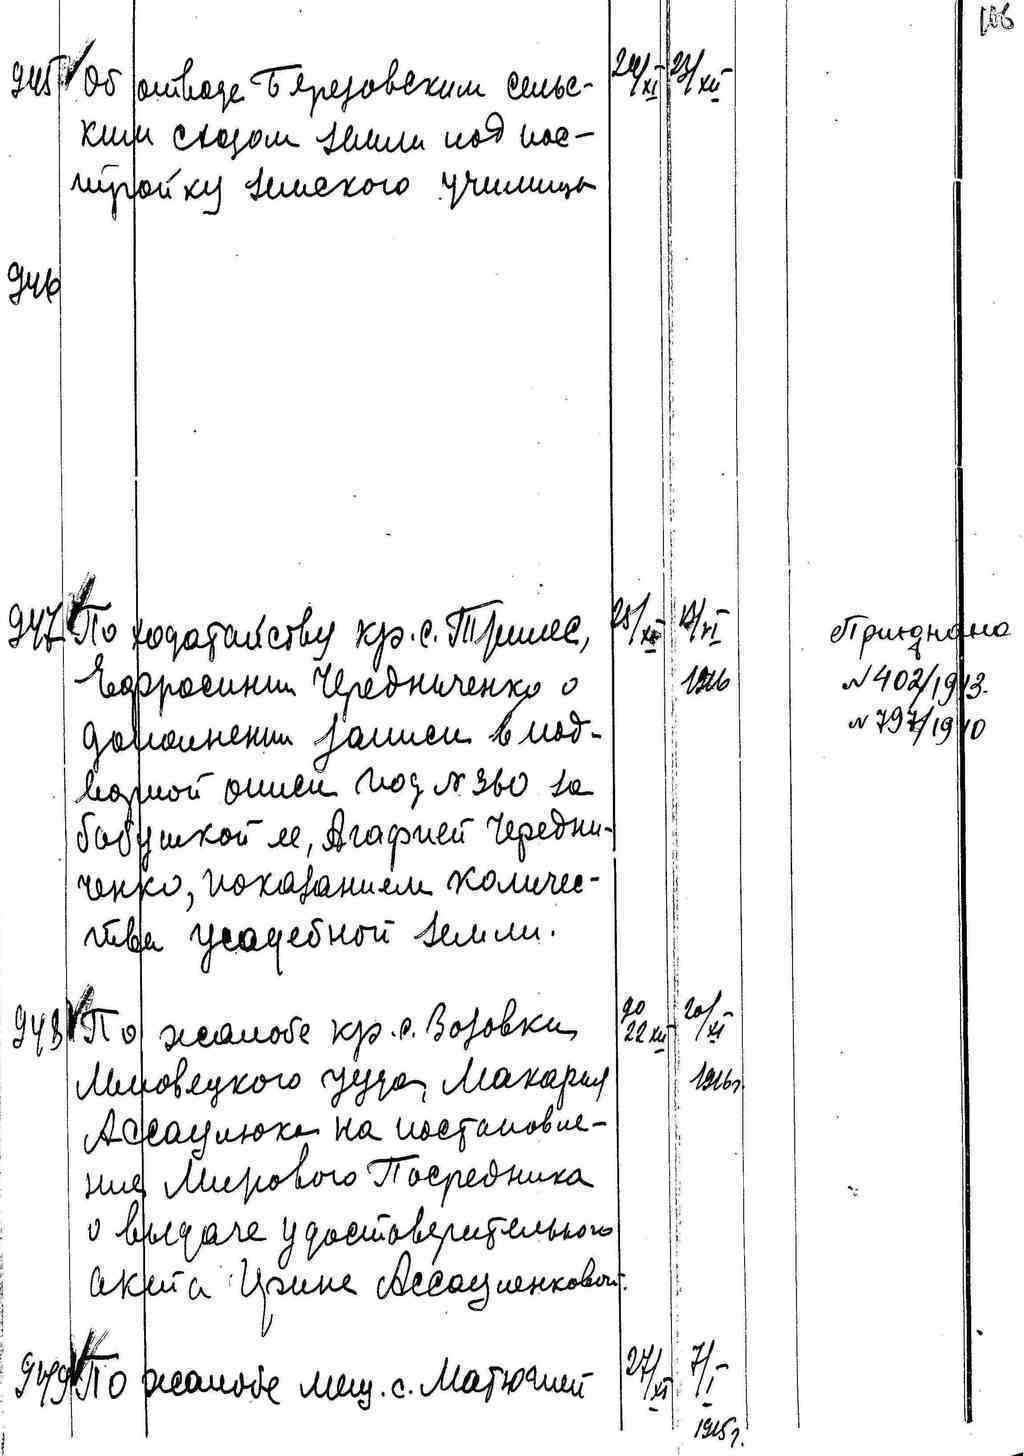 106
945 Об отводе Березовским сельс- 24/XI 23/XII
ким сходом земли под пос-
тройку земского училища
946
947 По ходатайству кр. с. Трилес, 25/XII 12/XI 1916
Евфросинии Чередниченко о
дополнении записи в под-
ворной описи под № 360 за
бабушкой ее, Агафией Чередни-
ченко, показанием количес-
тва усадебной земли.
Приєднано
№ 402/1913.
№ 797/1910
948 По жалобе кр. с. Возовки, до 22 XII 20/XI 1916г.
уезда, Макария
Ассаулюка на постановле-
ние Мирового Посредника
о выдаче удостоверительного
акта Ирине Ассауленковой.
949 По жалобе мещ. с. Матюшей 27/XI 7/I 1915г.